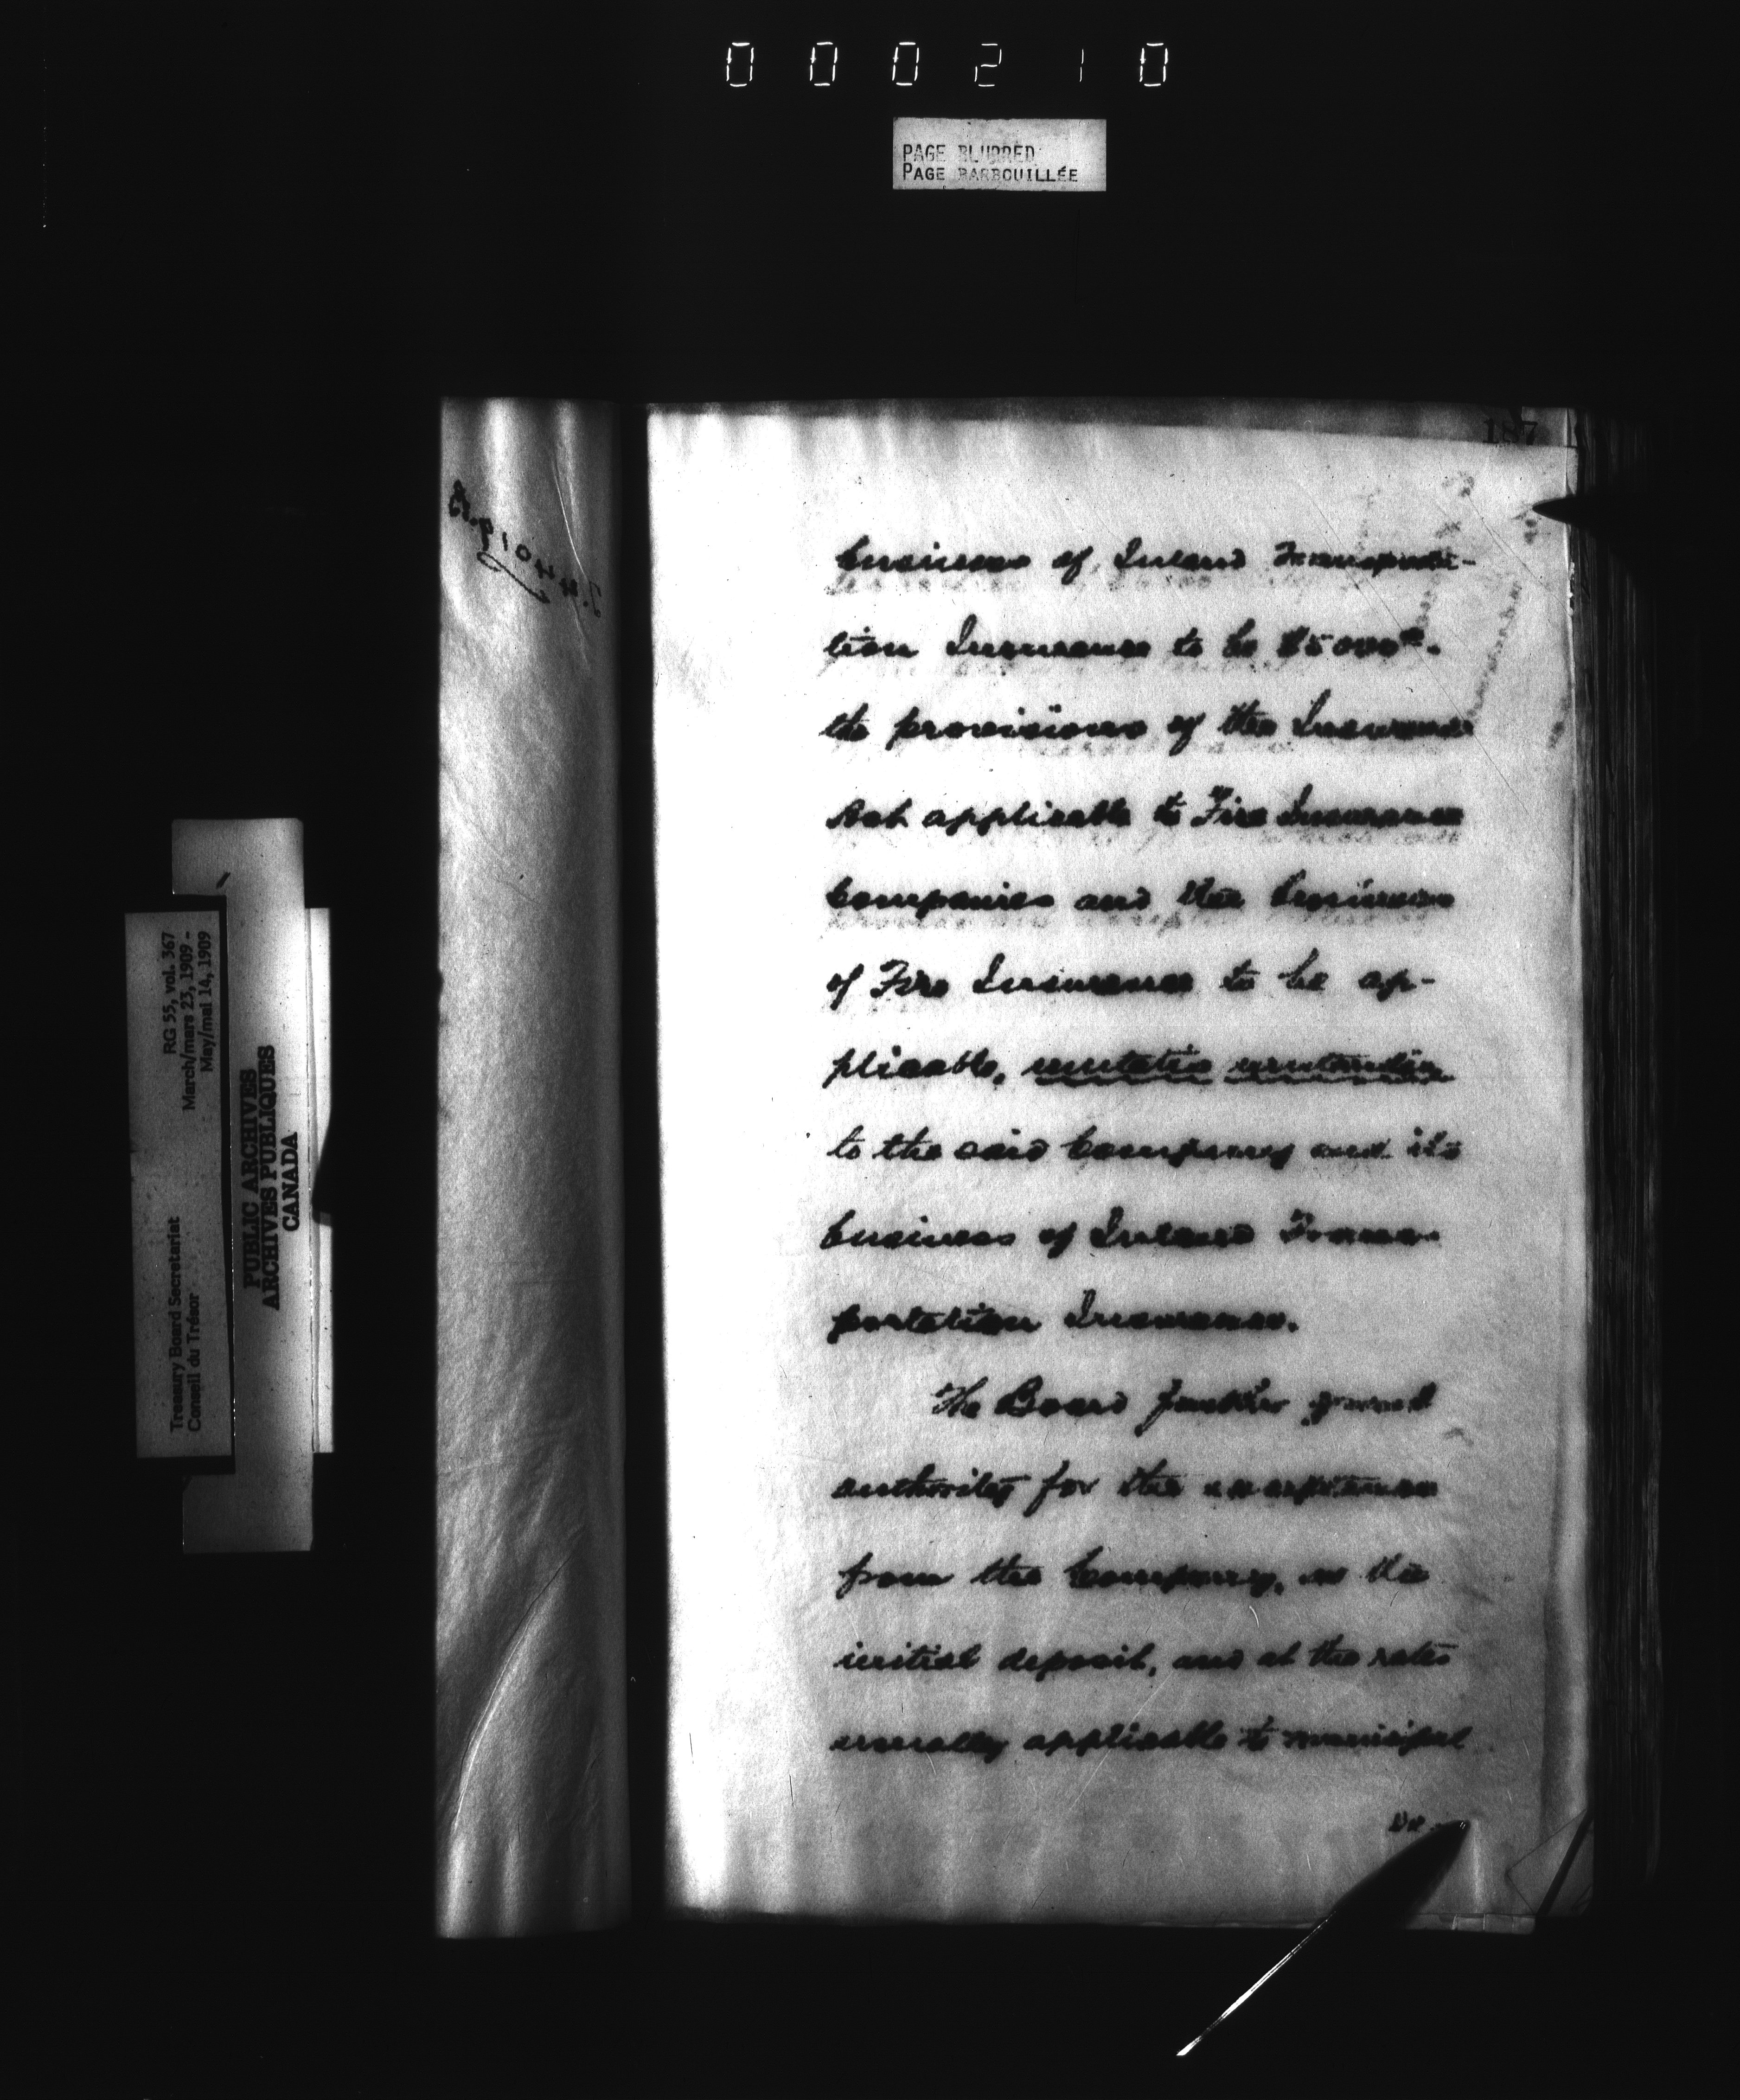 000210
PAGE BLURRED
PAGE BARBOUILLÉE
187
business of Inland Transporta-
tion Insurance to be $5000
the provisions of the Insurance
Act applicable to Fire Insurance
Companies and the business
of Fire Insurance to be ap-
plicable, mutatis mutandis
to the said Company and its
business of Inland Trans-
portation Insurance.
The Board further grant
authority for the acceptance
from the Company, as the
initial deposit, and at the rates
usually applicable to municipal
RG 55, vol. 367
March/mars 23, 1909 -
May/mai 14, 1909
Treasury Board Secretariat
Conseil du Trésor
PUBLIC ARCHIVES
ARCHIVES PUBLIQUES
CANADA